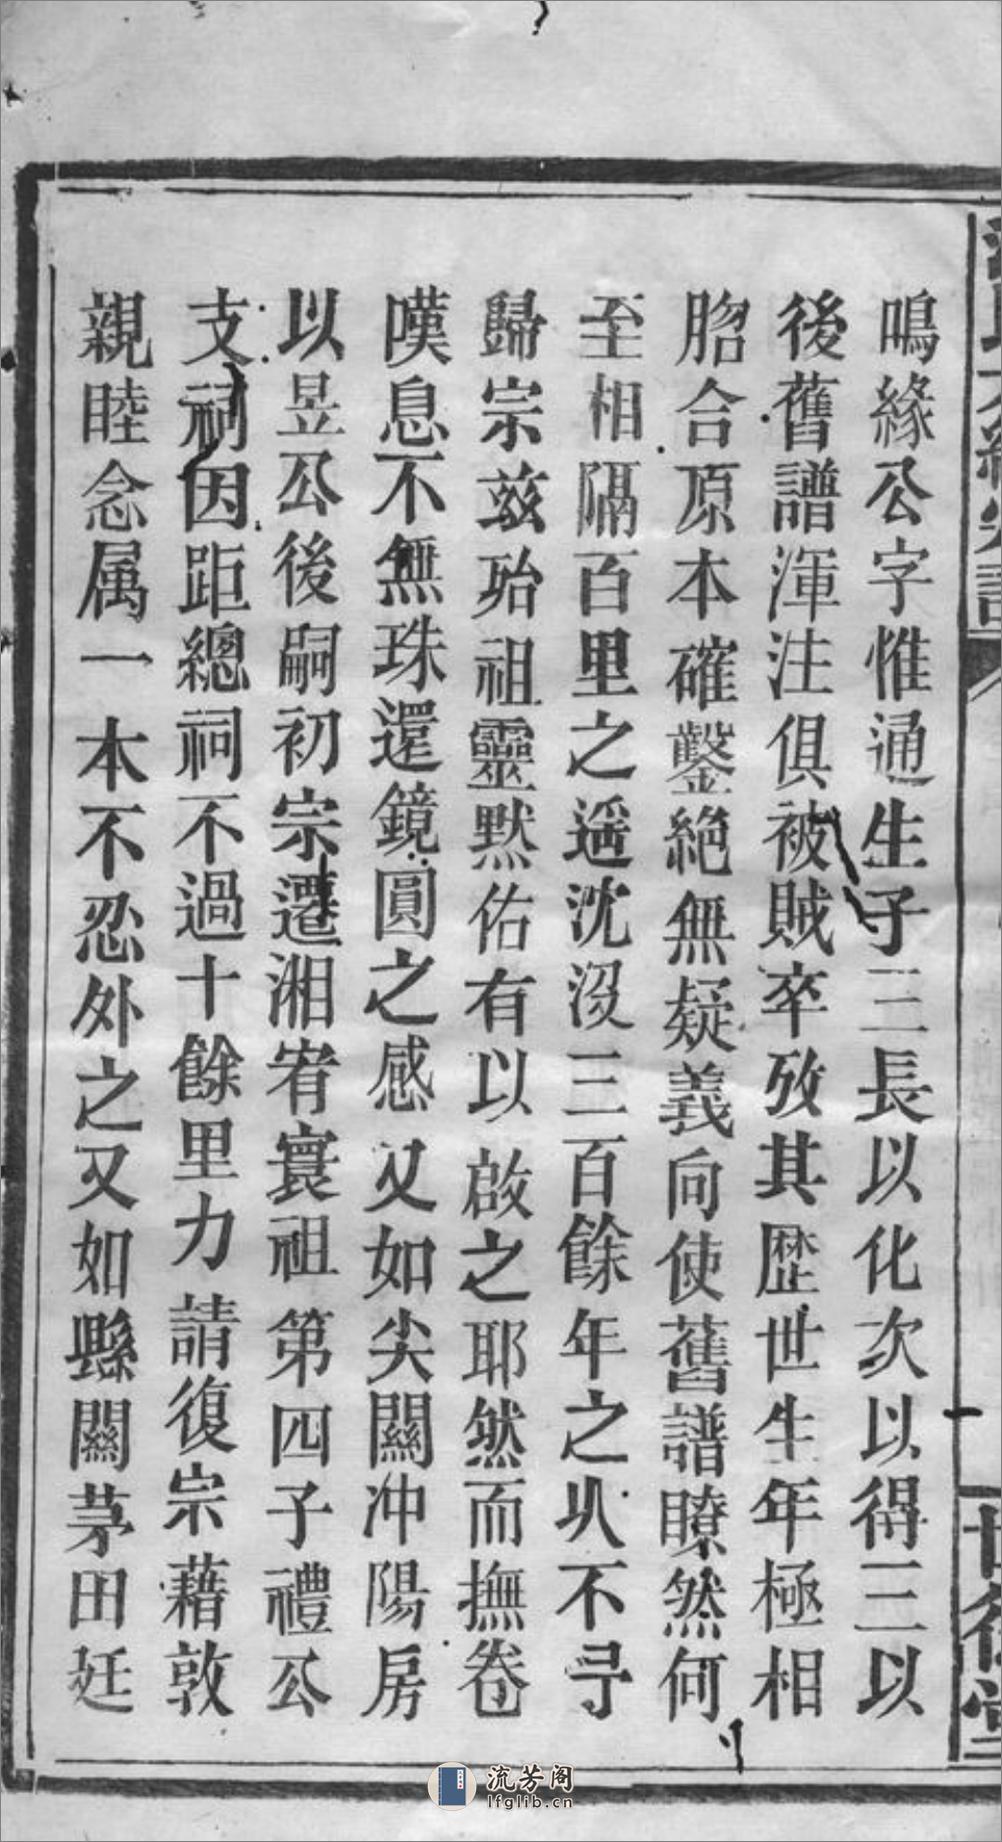 鳴緣公字惟通生子三長以化次以得三以
後舊譜渾注俱被賊卒攷其歷世生年極相
脗合原本確鑿絕無疑義向使舊譜瞭然何
至相隔百里之遥沈沒三百餘年之久不㝵
歸宗兹殆祖靈默佑有以啟之耶然而撫卷
嘆息不無珠還鏡圓之感又如尖關冲陽房
以昱公後嗣初宗遷湘宥寰祖第四子禮公
支祠因距總祠不過十餘里力請復宗藉敦
親睦念属一本不忍外之又如縣關茅田廷
流芳阁
lfglib.cn